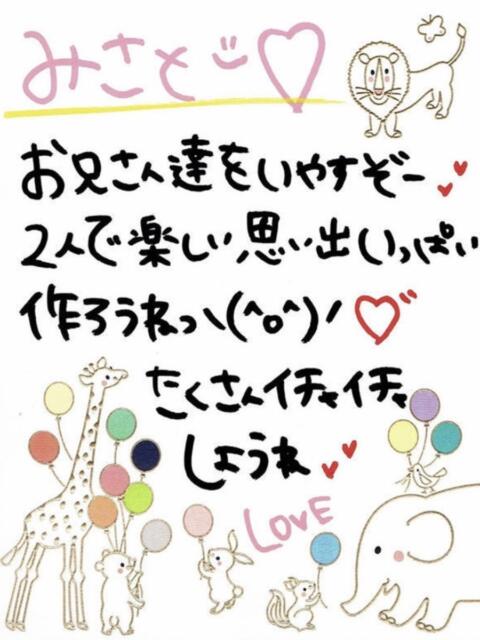 みさと♡
お兄さん達をいやすぞー
2人で楽しい思い出いっぱい
作ろうねっ\(^o^)/♡
たくさんイチャイチャ
しようね
LOVE